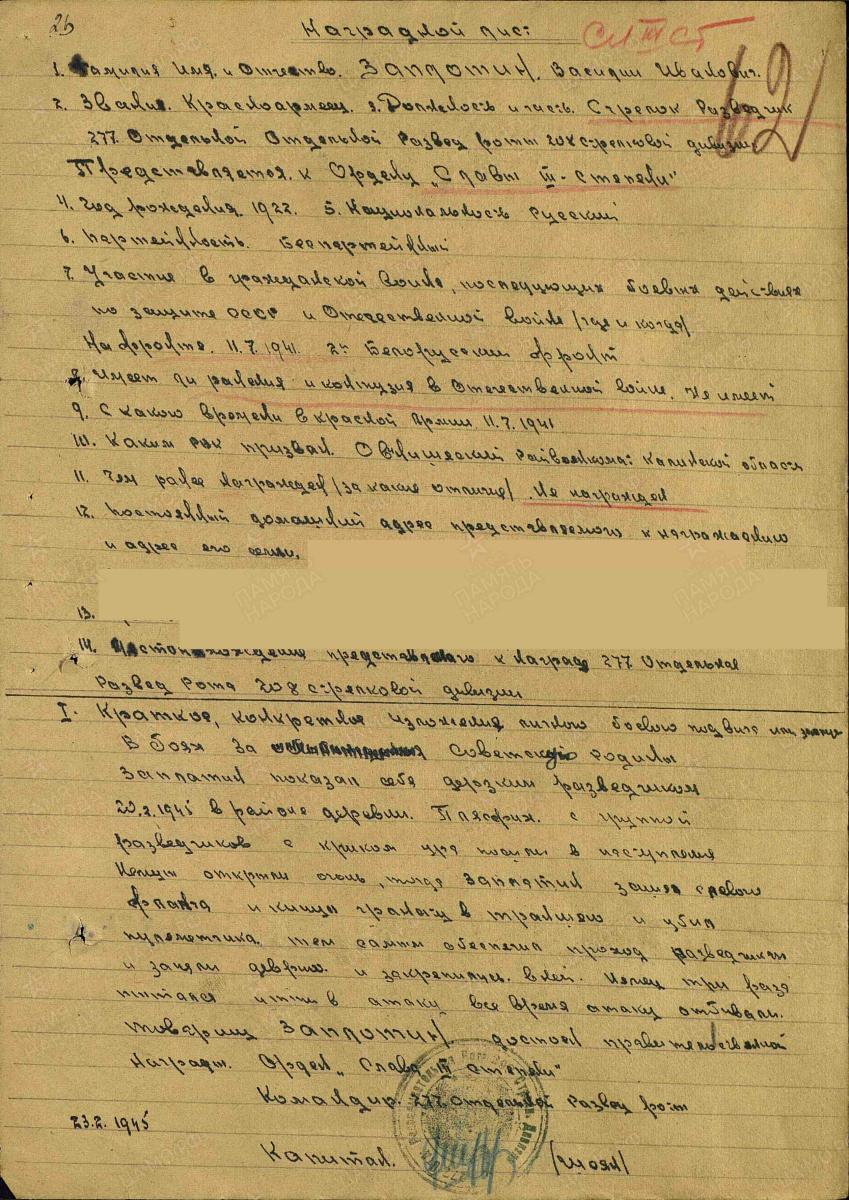 26
Наградной лист
Сл III ст
62
1. Фамилия Имя, и Отчество. ЗАПЛОТИН, Василий Иванович.
2. Звание. Красноармеец. 3. Должность и часть. Стрелок Разведчик
277. Отдельной Отдельной Развед роты 208 стрелковой дивизии
Представляется. к Ордену „Славы III-степени"
4. Год рождения. 1922. 5. Национальность Русский
6. Партейность. Беспартейный
7. Участие в гражданской войне, последующих боевых действиях
по защите СССР и Отечественной войне /где и когда/
На фронте. 11.7.1941. 2й Белорусский фронт
8. Имеет ли ранения и контузия в Отечественной войне. Не имеет
9. С какого времени в красной Армии 11.7.1941
10. Каким РВК призван. Райвоенкомат Калинской области
11. Чем ранее награжден /за какие отличия/ .Не награжден
12. Постоянный домашний адрес представляемого к награждению
и адрес его семьи.
13.
14. Местонахождения представляемого к Награде 277 Отдельная
Развед Рота 208 стрелковой дивизии
I. Краткое, конкретное изложения личного боевого подвига или заслуг
В боях за Советскую родины
Заплатин показал себя дерзким разведчиком
20.2.1945 в районе деревни. с группой
разведчиков с криком ура пошли в наступления
Немцы открыли огонь, тогда Заплатин зашел с левого
фланга и кинул гранату в траншею и убил
пулеметчика, тем самым обеспечил проход разведчикам
и заняли деврию и закрепились в ней. Немец три раза
питался итти в атаку все время атаку отбивали.
товарищ ЗАПЛОТИН достоин правительственной
Награды. Орден „Слава III степени"
Командир. 277 Отдельной Развед роты
23.2.1945
Капитан. /Шоян/